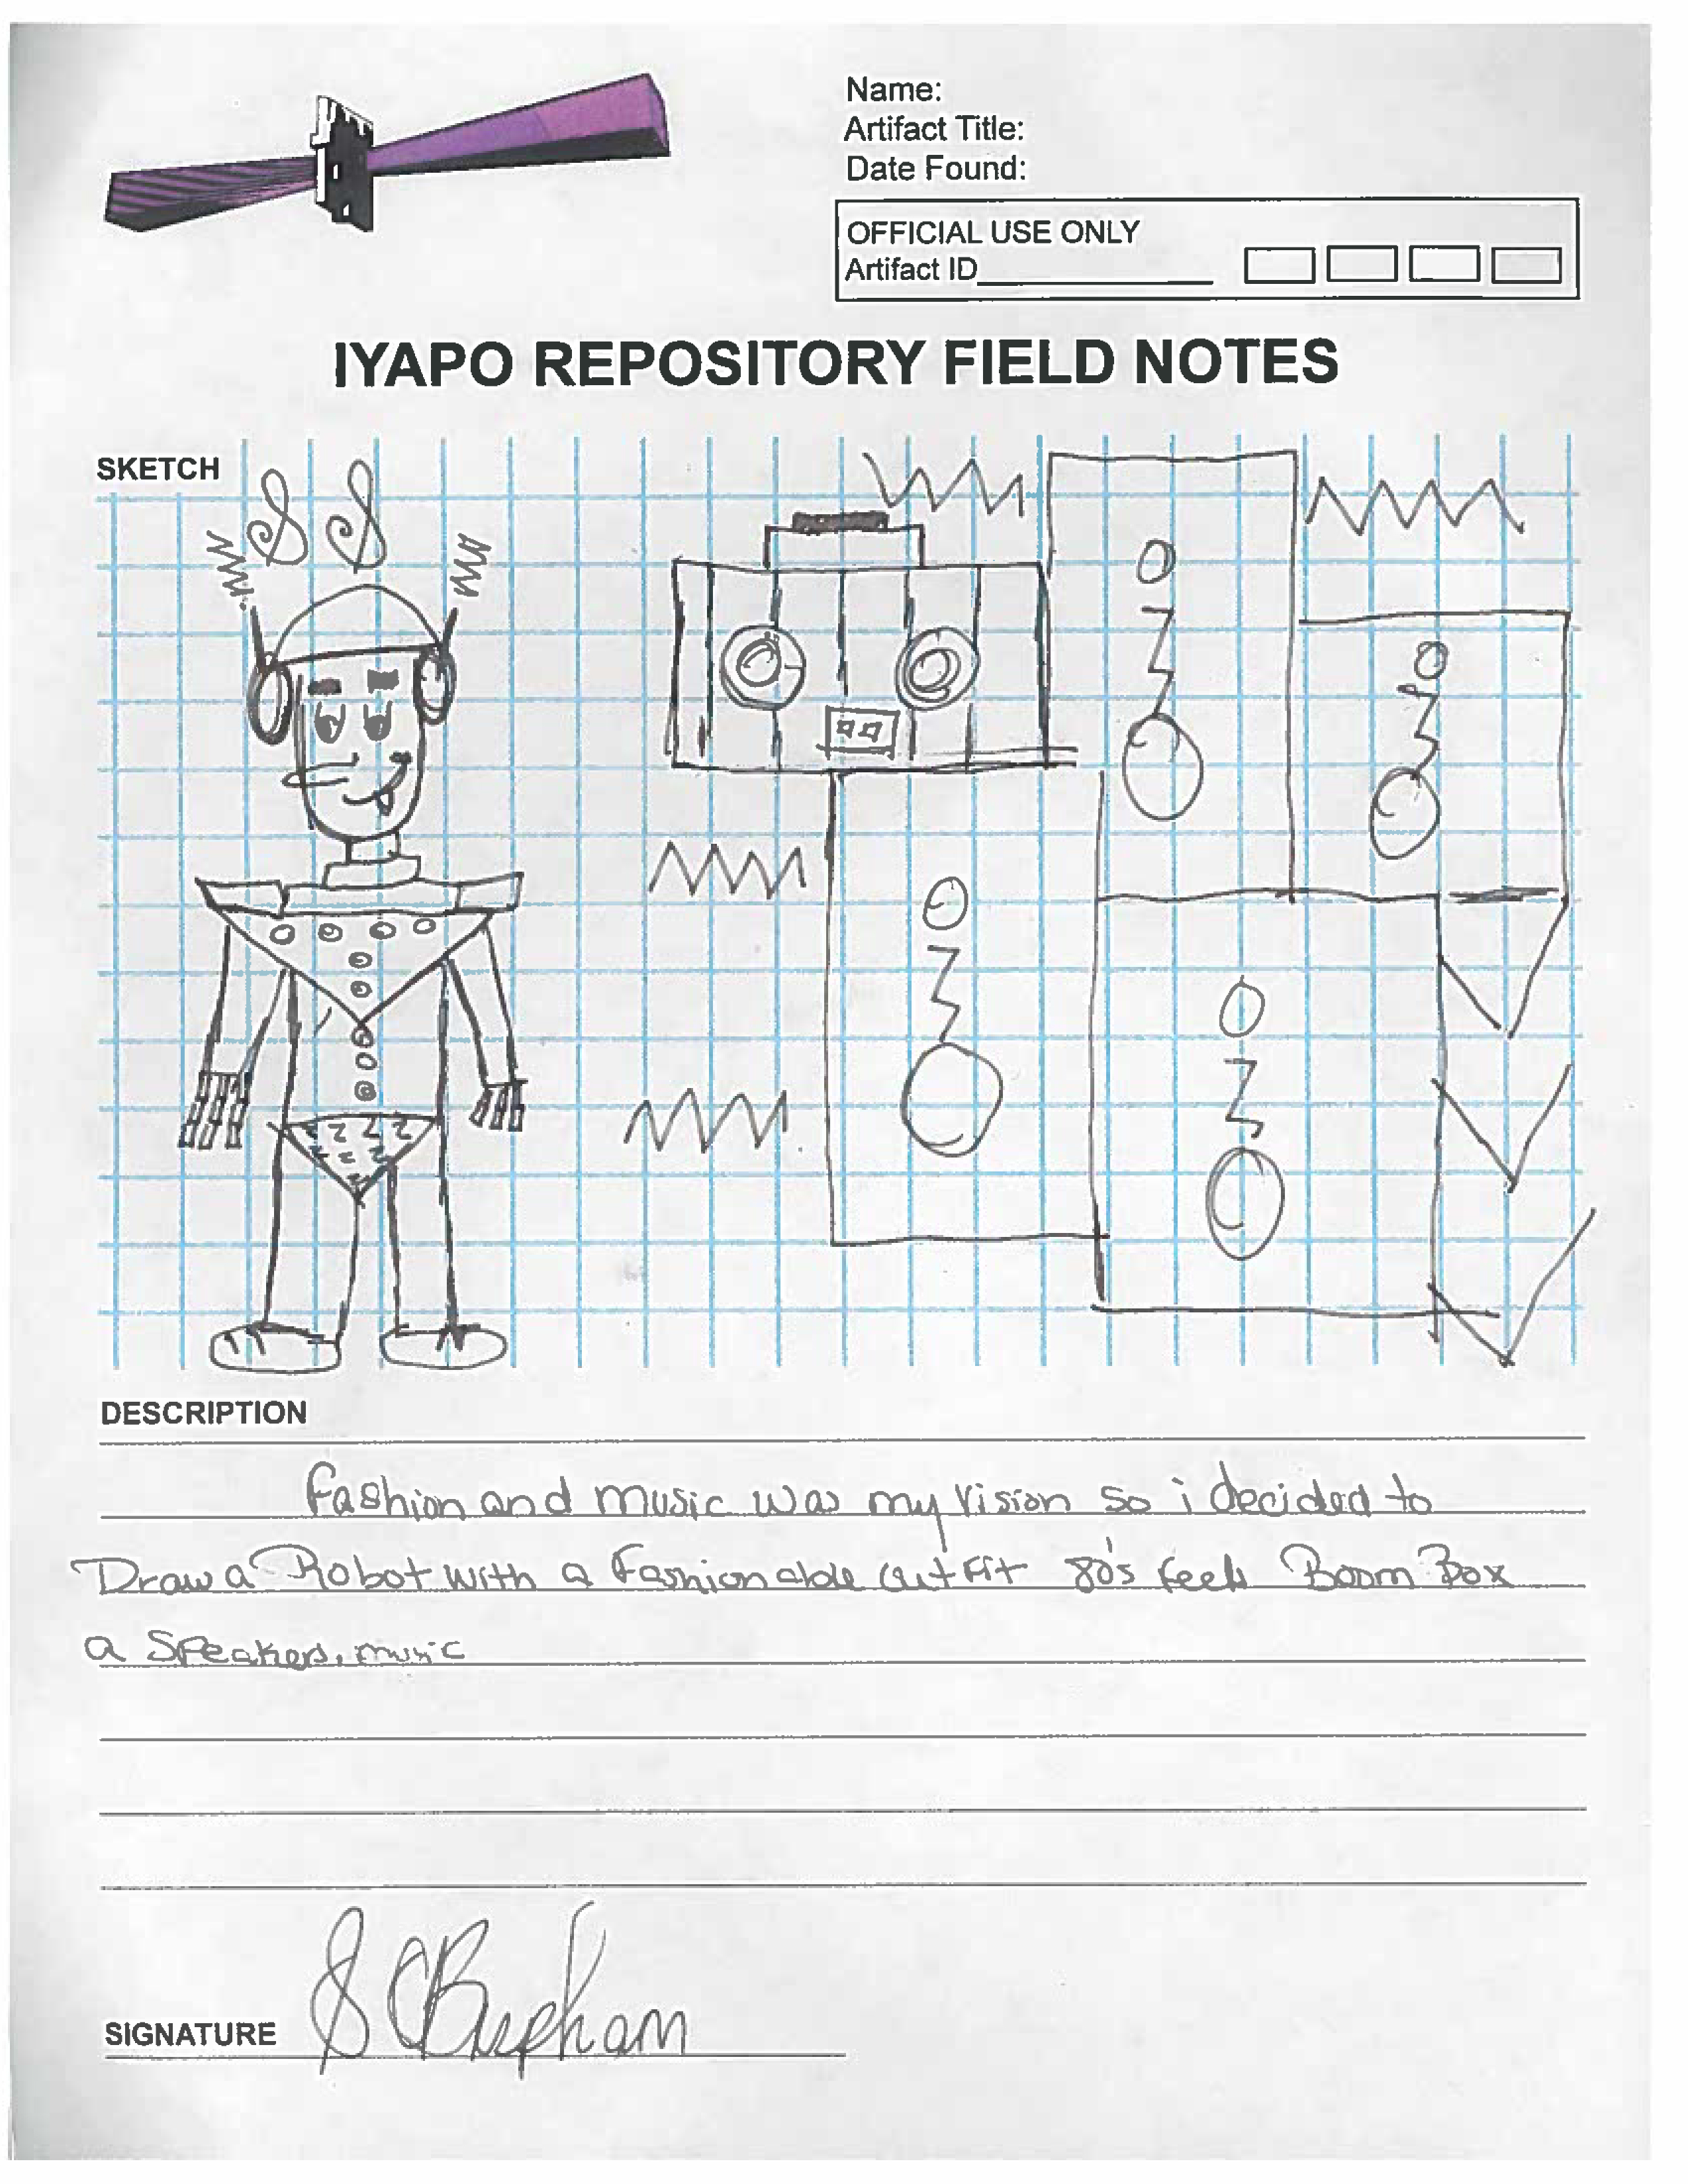 Name:
Artifact Title:
Date Found:
OFFICIAL USE ONLY
Artifact ID
IYAPO REPOSITORY FIELD NOTES
SKETCH
DESCRIPTION
Fashion and music was my vision so i decided to
Draw a Robot with a Fashionable outFit 80's feels Boom Box
a Speakers, music
SIGNATURE